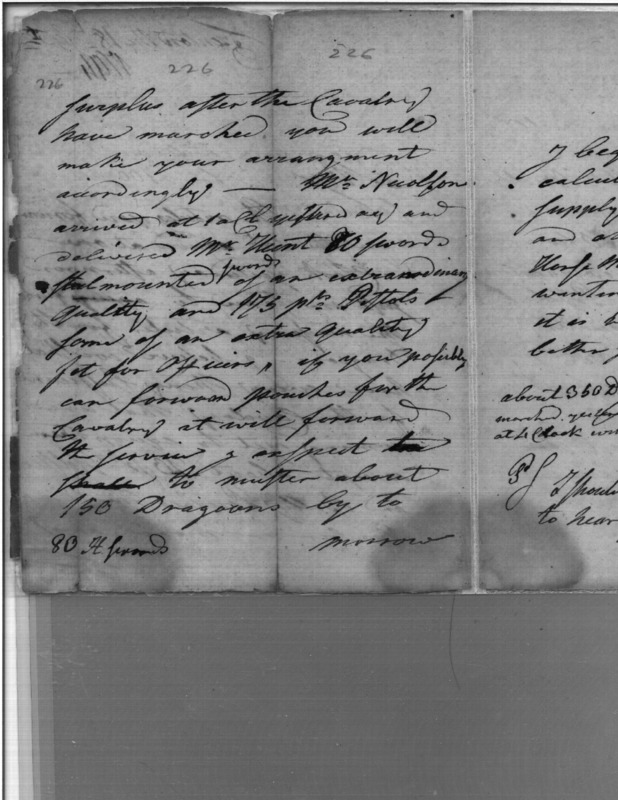 226
226
226
surplus after the Cavalrey
have marched you will
make your arrangment
accordingly — Mr.
arrived at and
delivered Mr. Hunt 80 swords
swords
mounted of an extraordinary
quallity and 175 prs Pistols
some of an extra quality
fet for Officers, if you possibly
can forward pouches for the
Cavalrey it will forward
the service I expect
to muster about
150 Dragoons by to
morrow
80 swords
I beg
calcul
supply
and a
Horse M
wantin
it is b
better
about 350 D
marched yes
at 4 Clock
PS
I shou
to hear